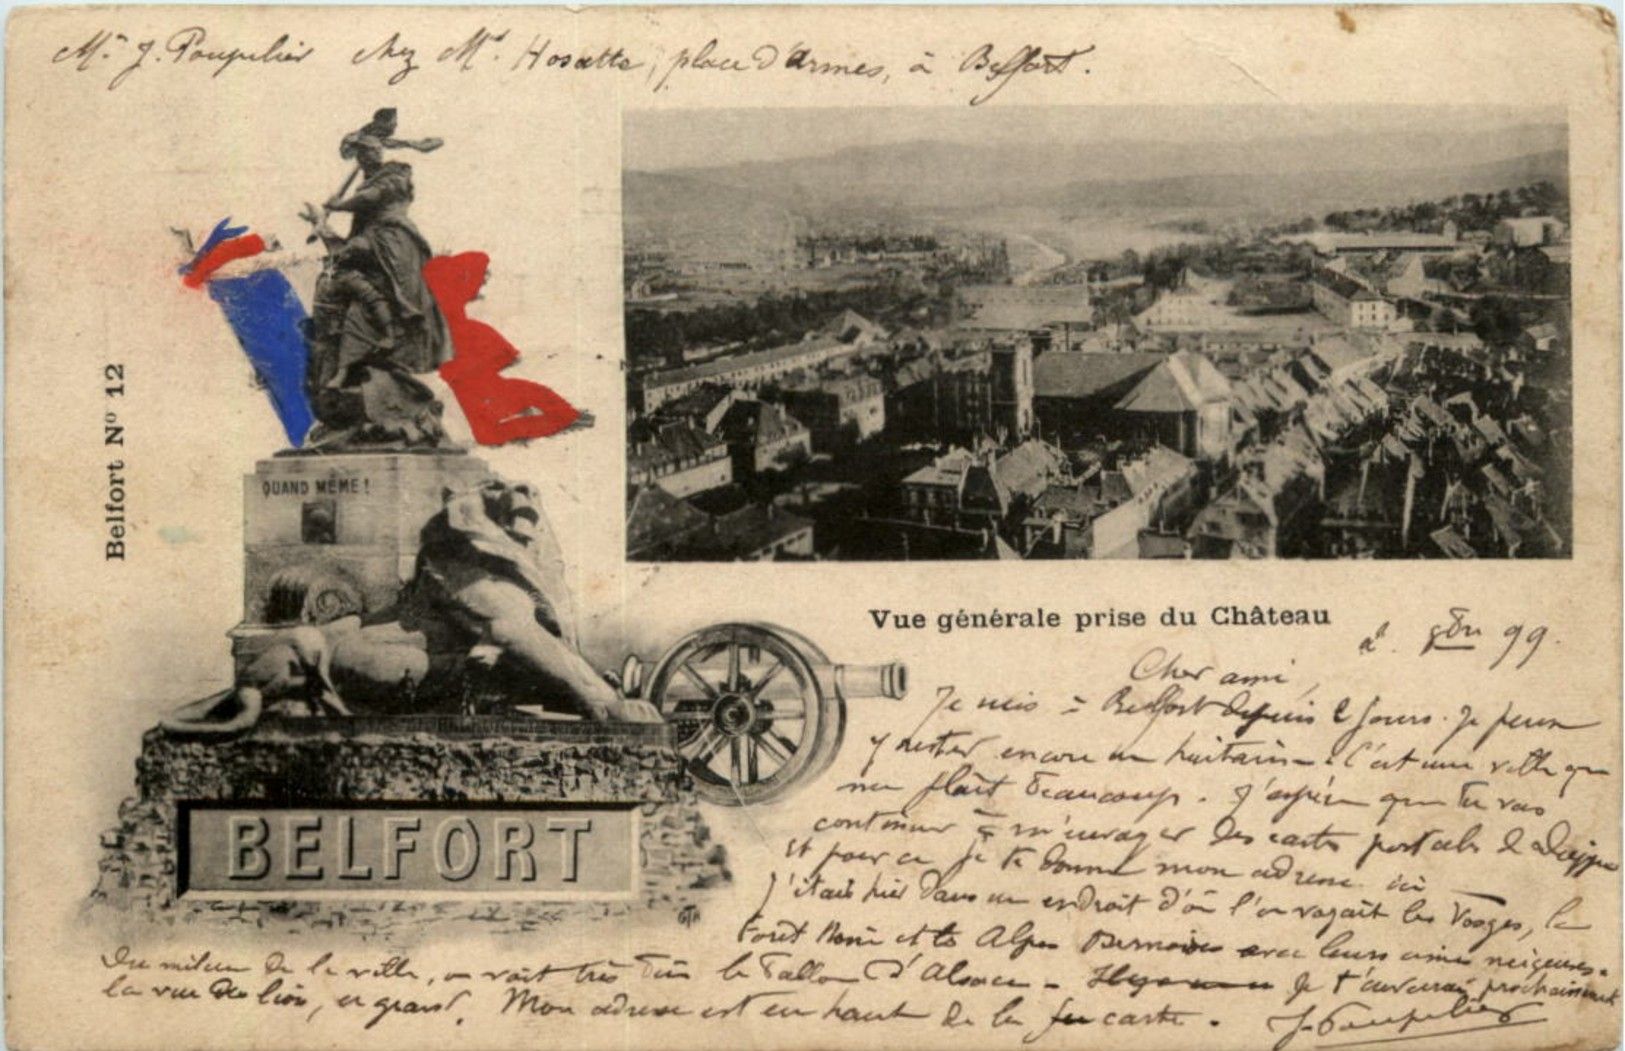 Mr J. Poupelier chez Md Hosatte, place d'Armes, à Belfort.
Belfort No 12
QUAND MÊME !
BELFORT
Vue générale prise du Château
2. 8bre 99.
Cher ami,
Je suis à Belfort depuis 2 jours. Je peux
y rester encore un huitaine. C'est une ville qui
me plaît beaucoup. J'espère que tu vas
continuer à m'envoyer des cartes postales de Dieppe
et pour ce je te donne mon adresse ici
J'étais hier dans un endroit d'où l'on voyait les Vosges, la
Forêt Noire et les Alpes Bernoises avec leurs cimes neigeuses.
Du milieu de la ville, on voit très bien le Ballon d'Alsace - Je t'enverrai prochainement
la vue du lion, en grand. Mon adresse est en haut de la carte.
J. Poupelier